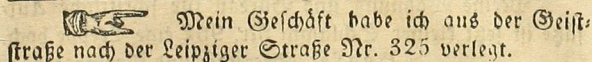 ☞ Mein Geschäft habe ich aus der Geist-
straße nach der Leipziger Straße Nr. 325 verlegt.